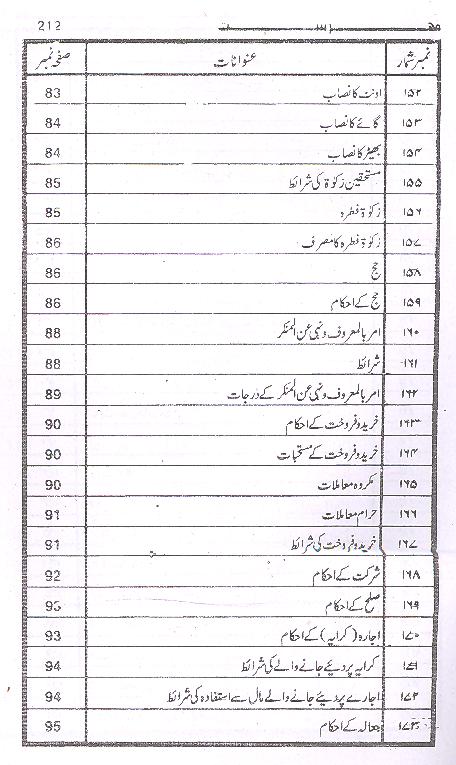 212 فهرست
نمبر شمار عنوانات صفحہ نمبر
۱۵۲ اونٹ کا نصاب 83
۱۵۳ گائے کا نصاب 84
۱۵۴ بھیڑ کا نصاب 84
۱۵۵ مستحقین زکوٰۃ کی شرائط 85
۱۵۶ زکوٰۃ فطرہ 85
۱۵۷ زکوٰۃ فطرہ کا مصرف 86
۱۵۸ حج 86
۱۵۹ حج کے احکام 86
۱۶۰ امر بالمعروف و نہی عن المنکر 88
۱۶۱ شرائط 88
۱۶۲ امر بالمعروف و نہی عن المنکر کے درجات 89
۱۶۳ خرید و فروخت کے احکام 90
۱۶۴ خرید و فروخت کے مستحبات 90
۱۶۵ مکروہ معاملات 90
۱۶۶ حرام معاملات 91
۱۶۷ خرید و فروخت کی شرائط 91
۱۶۸ شرکت کے احکام 92
۱۶۹ صلح کے احکام 93
۱۷۰ اجارہ (کرایہ) کے احکام 93
۱۷۱ کرایہ پر دیئے جانے والے کی شرائط 94
۱۷۲ اجارے پر دیئے جانے والے مال سے استفادہ کی شرائط 94
۱۷۳ جعالہ کے احکام 95